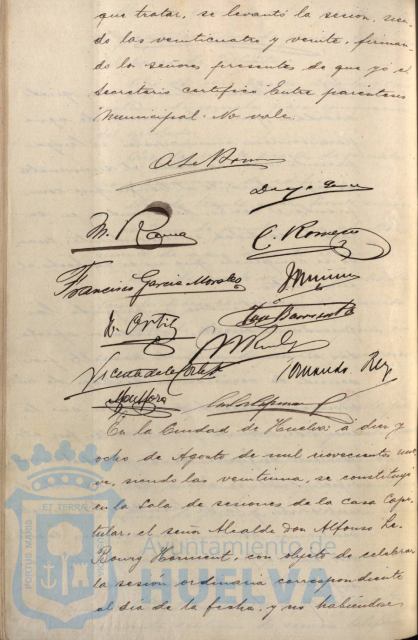 que tratar, se levantó la sesión, sien-
do las veinticuatro y veinte, firman-
do los señores presentes de que yo el
Secretario certifico Entre parentesis
Municipal. No vale.
M. Rouna
C. Romero
Francisco Garcia Morales
E. Ortiz
José Barrientos
Fernando Rey
Mora
En la Ciudad de Huelva á diez y
ocho de Agosto de mil novecientos nue-
ve, siendo las veintiuna, se constituyó
en la Sala de sesiones de la casa Capi-
tular, el señor Alcalde Don Alfonso Le
Bourg Horment, con objeto de celebrar
la sesión ordinaria correspondiente
al dia de la fecha, y no habiendose
PORTUS MARIS
ET TERRÆ
Ayuntamiento de
HUELVA